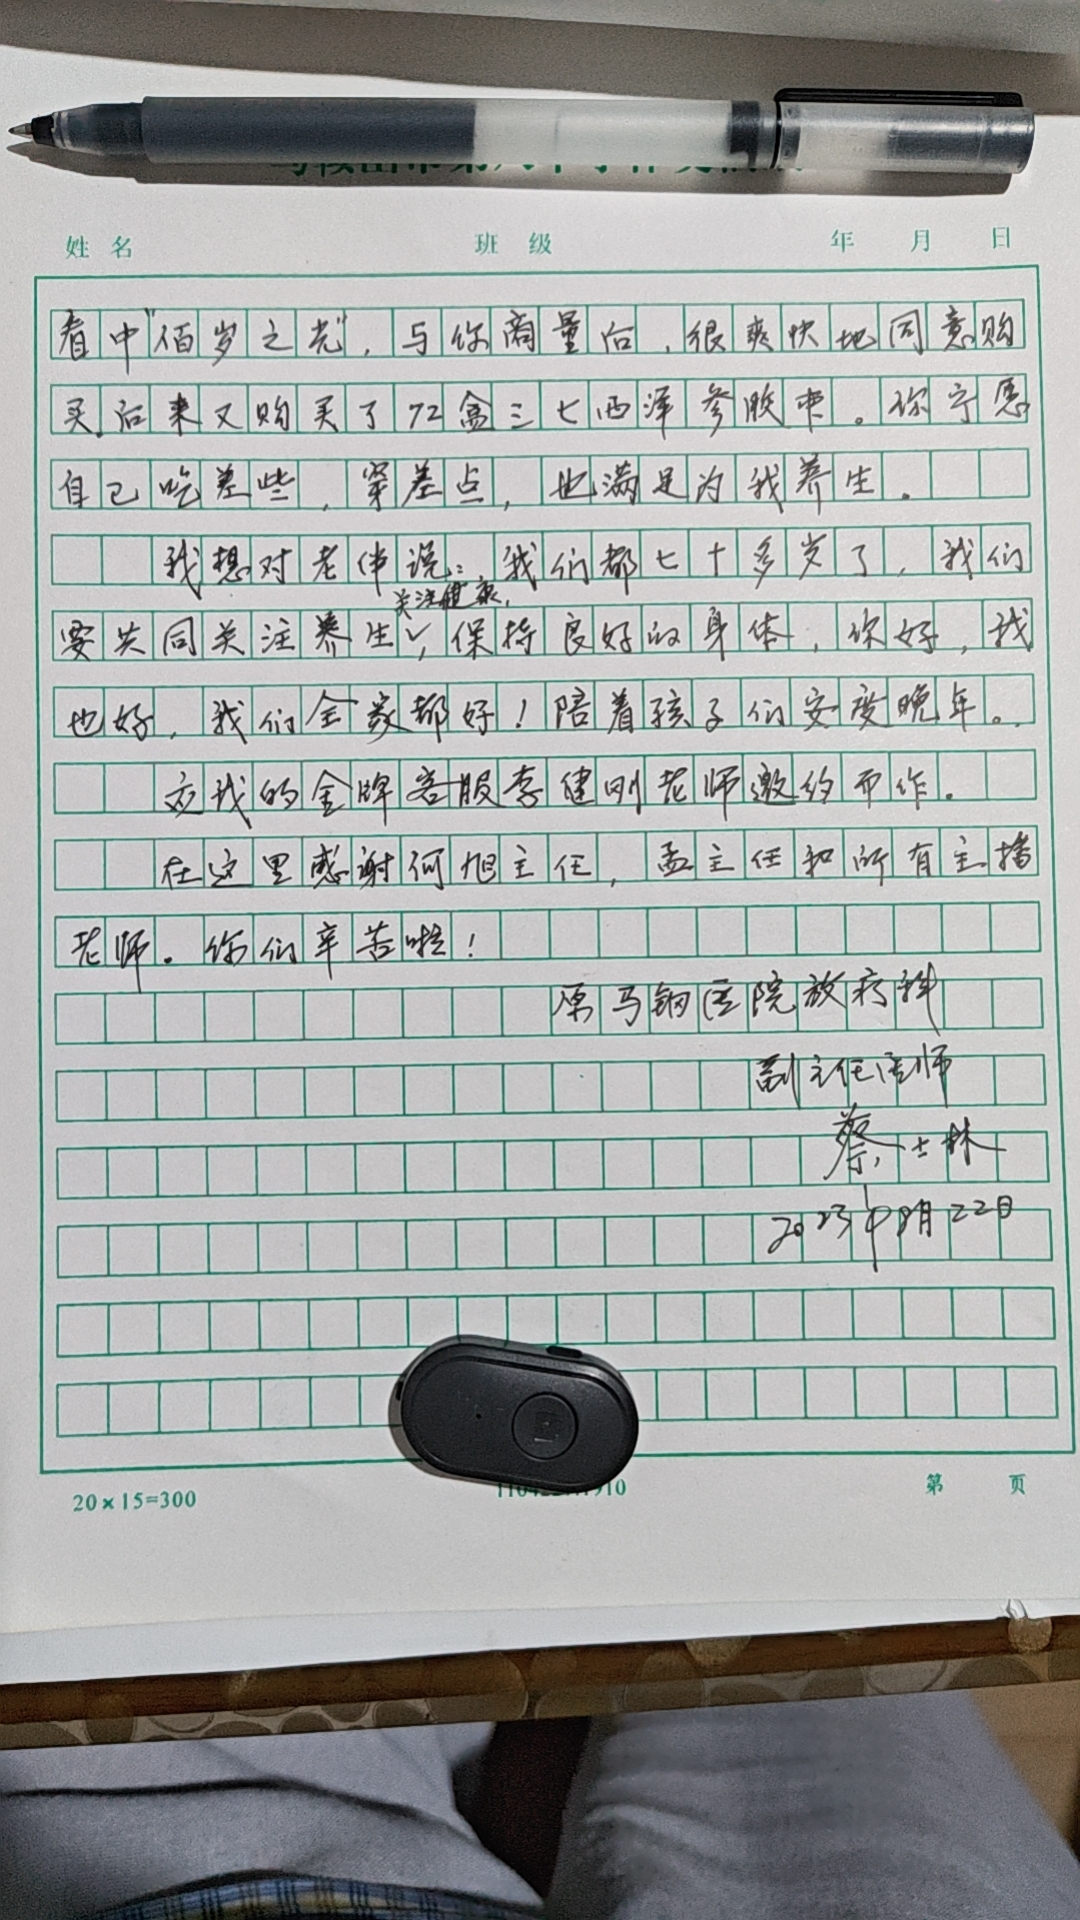 姓名 班级 年 月 日
看中"佰岁之光",与你商量后,很爽快地同意购
买。后来又购买了72盒三七西洋参胶束。你宁愿
自己吃差些,穿差点,也满足为我养生。
我想对老伴说:我们都七十多岁了,我们
关注健康,
要共同关注养生,保持良好的身体,你好,我
也好,我们全家都好!陪着孩子们安度晚年。
应我的金牌客服李健刚老师邀约而作。
在这里感谢何旭主任,孟主任和所有主播
老师。你们辛苦啦!
原马钢医院放疗科
副主任医师
蔡士林
2023年8月22日
20×15=300 第 页